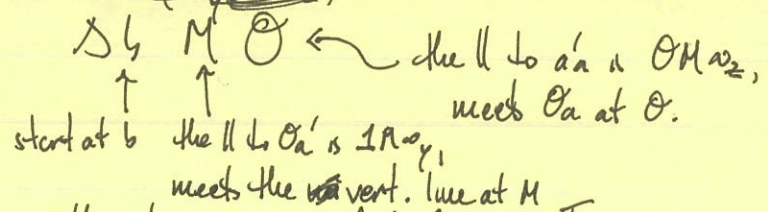 Δb M O ← the || to a'a is OM∞z,
meets Oa at O.
start at b the || to Oa' is 1M∞y,
meets the vert. line at M